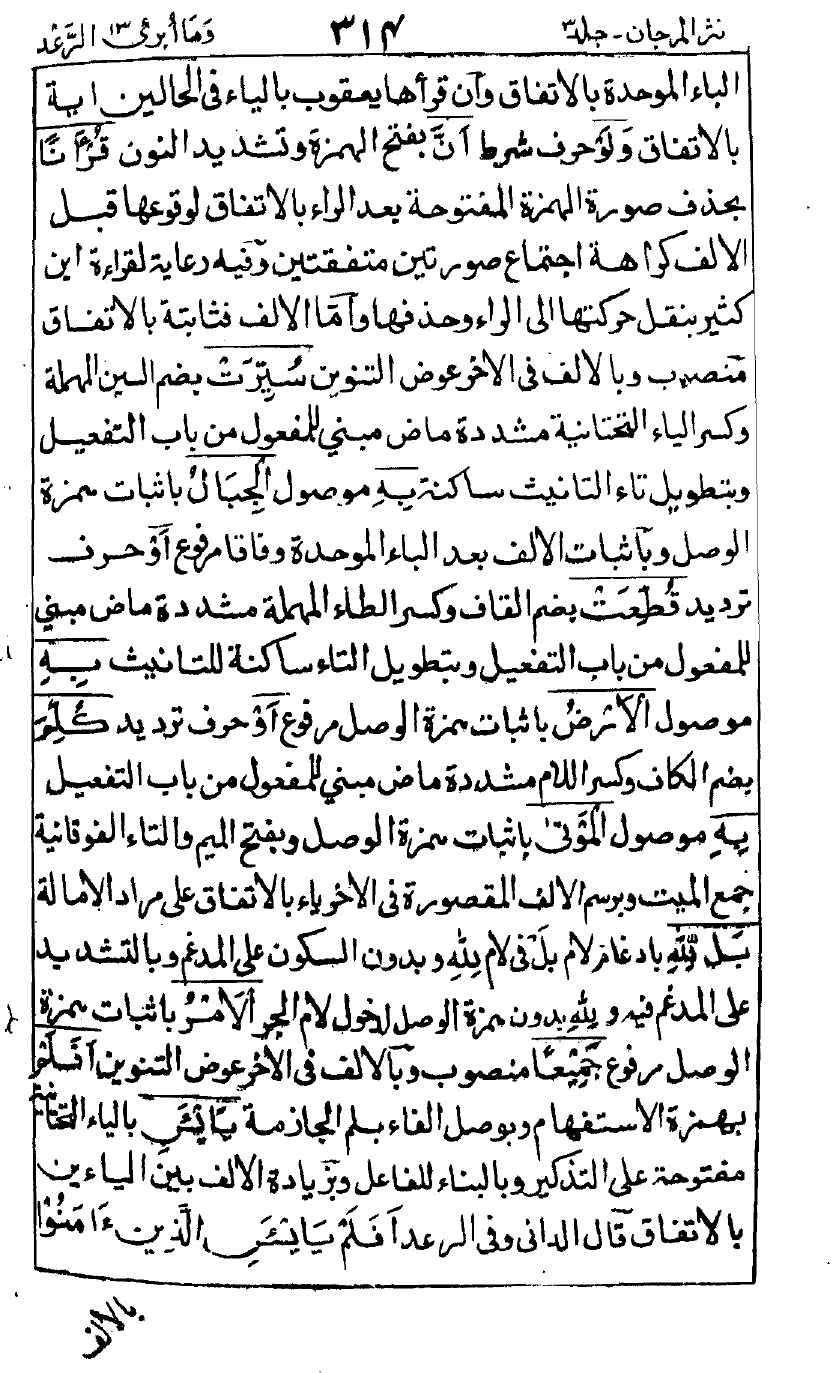 نثر المرجان - جلد ٣ ٣١٤ وَمَا أبرئ ١٣ الرَّعْد
الباء الموحدة بالاتفاق وآن قرأها يعقوب بالياء فى الحالين اية
بالاتفاق وَلَوْ حرف شرط اَنَّ بفتح الهمزة وتشديد النون قُرْاٰنًا
بحذف صورة الهمزة المفتوحة بعد الراء بالاتفاق لوقوعها قبل
الالف كراهة اجتماع صورتين متفقتين وفيه رعاية لقراءة ابن
كثير بنقل حركتها الى الراء وحذفها وآمّا الالف فثابتة بالاتفاق
منصوب وبالالف فى الاخر عوض التنوين سُيِّرَتْ بضم السين المهملة
وكسر الياء التحتانية مشددة ماض مبنى للمفعول من باب التفعيل
وبتطويل تاء التانيث ساكنة بِهِ موصول الْجِبَالُ باثبات همزة
الوصل وبآثبات الالف بعد الباء الموحدة وفاقا مرفوع اَوْ حرف
ترديد قُطِّعَتْ بضم القاف وكسر الطاء المهملة مشددة ماض مبنى
للمفعول من باب التفعيل وبتطويل التاء ساكنة للتانيث بِهِ
موصول الْاَرْضُ باثبات همزة الوصل مرفوع اَوْ حرف ترديد كُلِّمَ
بضم الكاف وكسر اللام مشددة ماض مبنى للمفعول من باب التفعيل
بِهِ موصول الْمَوْتٰى باثبات همزة الوصل وبفتح الميم والتاء الفوقانية
جمع الميت وبرسم الالف المقصورة فى الاخر ياء بالاتفاق على مراد الامالة
بَلْ لِّلّٰهِ بادغام لام بَلْ فى لام لِلّٰهِ وبدون السكون على المدغم وبالتشديد
على المدغم فيه ولِلّٰهِ بدون همزة الوصل لدخول لام الجر الْاَمْرُ باثبات همزة
الوصل مرفوع جَمِيْعًا منصوب وبآلالف فى الاخر عوض التنوين اَفَلَمْ
بهمزة الاستفهام وبوصل الفاء بلم الجازمة يَايْئَسِ بالياء التحتانية
مفتوحة على التذكير وبالبناء للفاعل وبزيادة الالف بين الياءين
بالاتفاق قآل الدانى وفى الرعد اَفَلَمْ يَايْئَسِ الَّذِينَ ءَامَنُوْا
بالألف